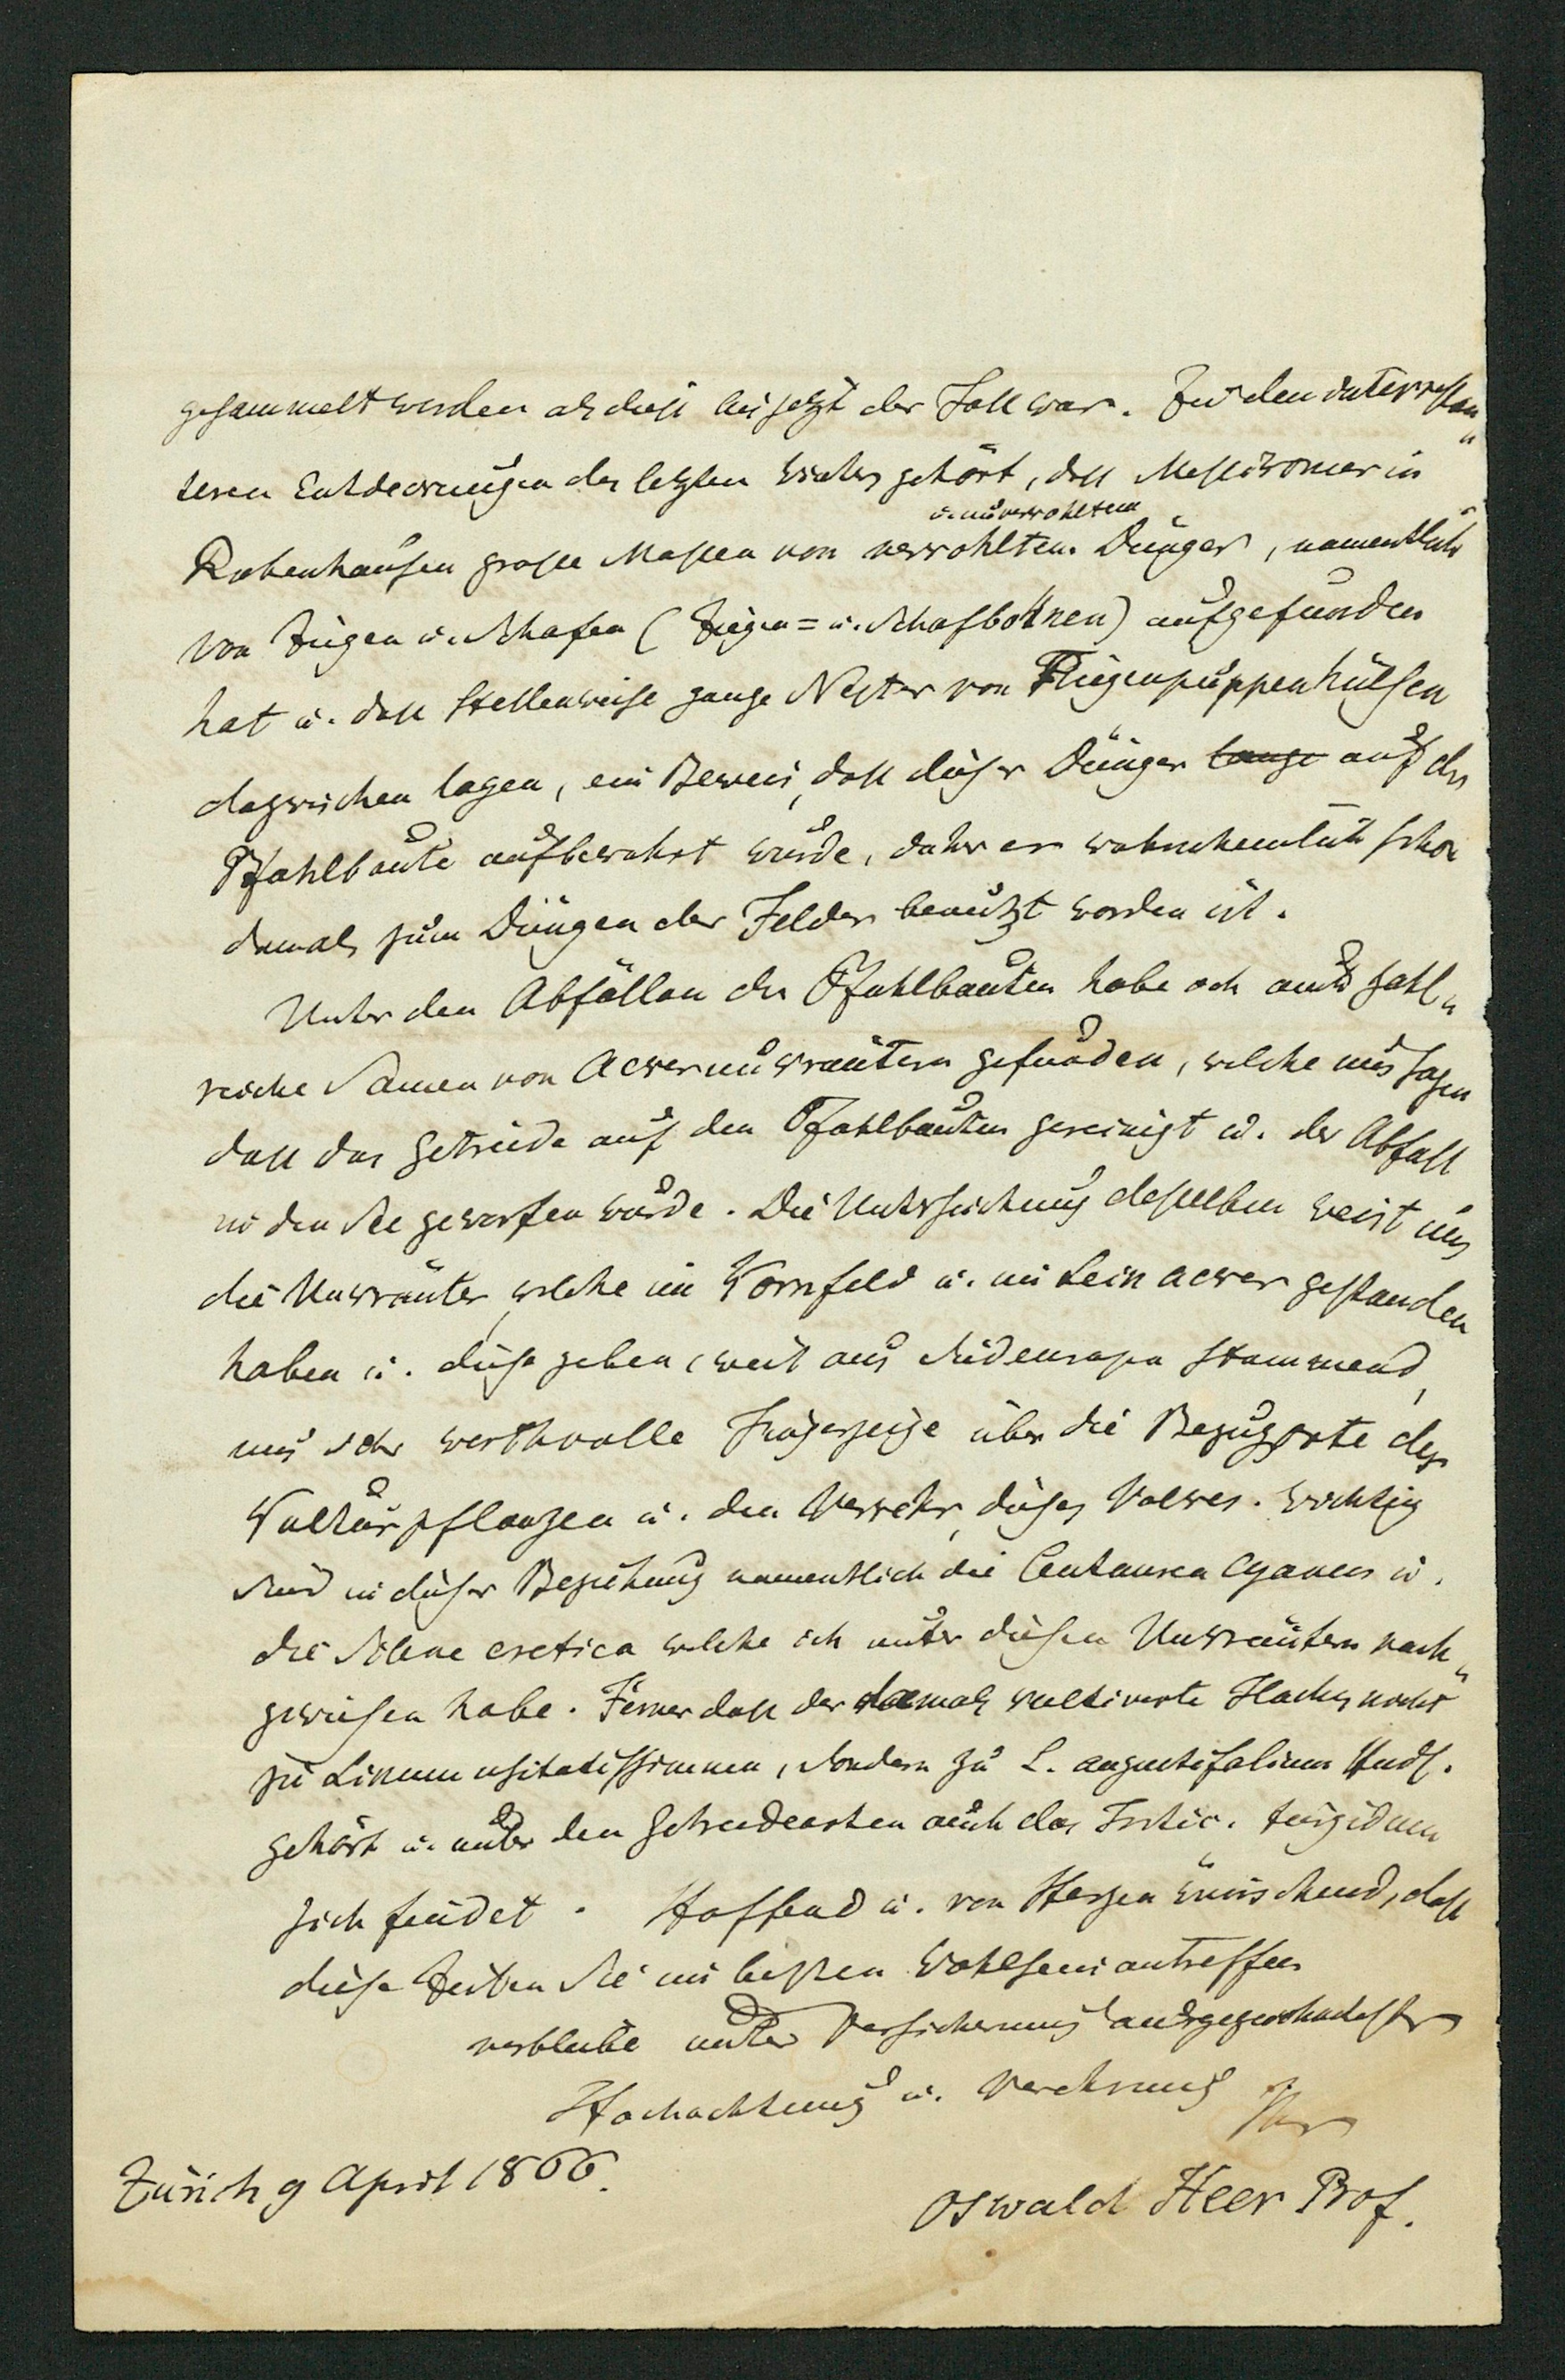 gesammelt werden als diess bis jetzt der Fall war. Zu den interessan„
teren Entdeckungen der letzten Woche gehört, dass Messikomer in
Robenhausen grosse Massen von verkohltem u. unverkohltem Dünger, namentlich
von Ziegen u. Schafen (Ziegen= u. Schafbohnen) aufgefunden
hat u. dass stellenweise ganze Nester von Fliegenpuppenhülsen
dazwischen lagen, ein Beweis, dass dieser Dünger lange auf der
Pfahlbaute aufbewahrt wurde, daher er wahrscheinlich schon
damals zum Düngen der Felder benutzt worden ist.
Unter den Abfällen der Pfahlbauten habe ich auch zahl„
reiche Samen von Ackerunkräutern gefunden, welche uns sagen
dass das Getreide auf den Pfahlbauten gereinigt u. der Abfall
in den See geworfen wurde. Die Untersuchung desselben weist uns
die Unkräuter, welche im Kornfeld u. im Leinacker gestanden
haben u. diese geben, weil aus Südeuropa stammend,
uns sehr werthvolle Fingerzeige über die Bezugsorte der
Kulturpflanzen u. den Verkehr dieses Volkes. Wichtig
sind in dieser Beziehung namentlich die Centaurea Cyanus u.
die Silene cretica welche ich unter diesen Unkräutern nach„
gewiesen habe. Ferner dass der damals kultivirte Flachs nicht
zu Linum usitatissimum, sondern zu L. angustifolium Huds.
gehört u. unter den Getreidearten auch das Tritic. turgidum
sich findet. Hoffend u. von Herzen wünschend, dass
diese Zeilen Sie im besten Wohlsein antreffen
verbleibe unter Versicherung ausgezeichnetster
Hochachtung u. Verehrung Ihr
Zürich 9 April 1866.
Oswald Heer Prof.